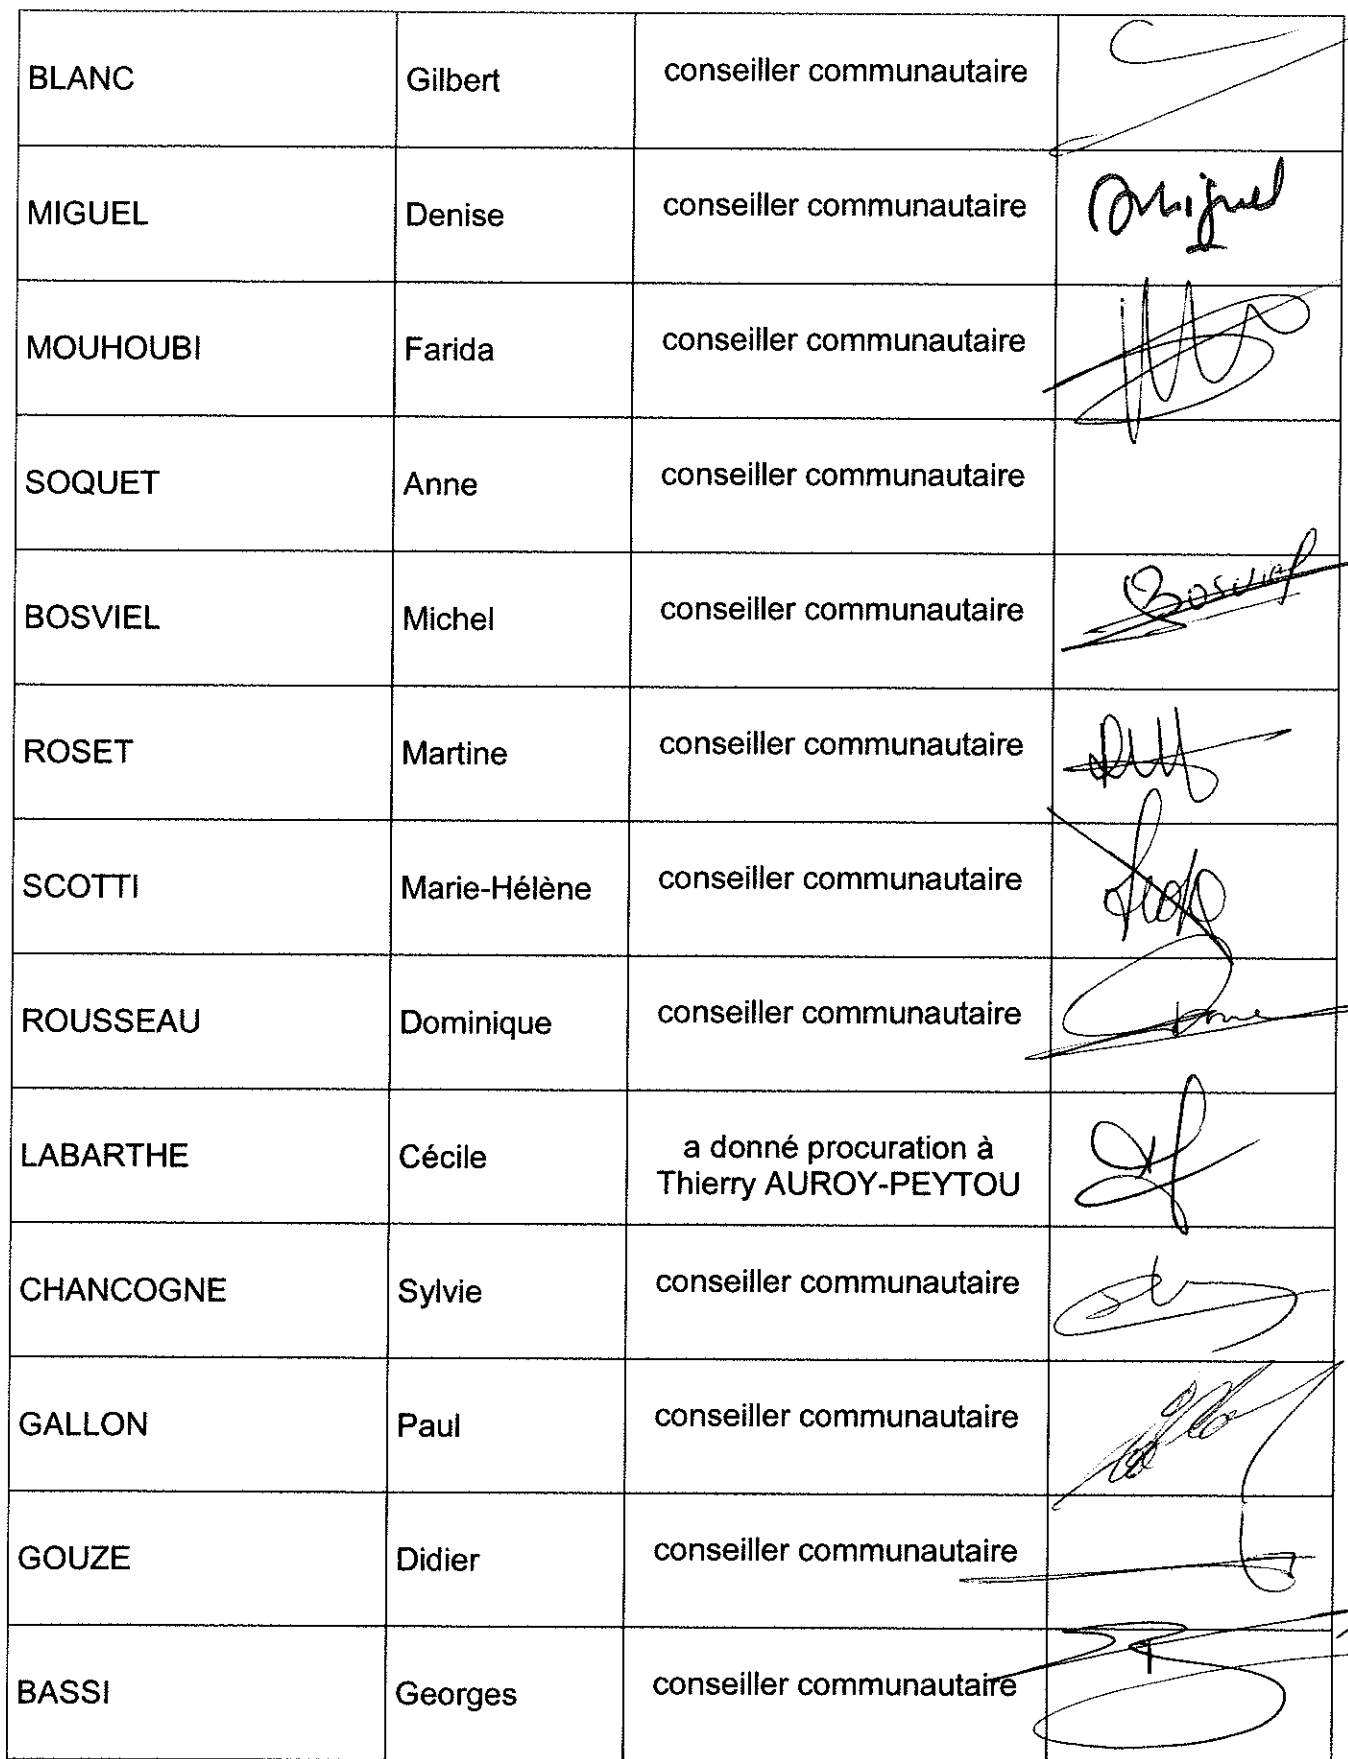 BLANC Gilbert conseiller communautaire
MIGUEL Denise conseiller communautaire DMiguel
MOUHOUBI Farida conseiller communautaire
SOQUET Anne conseiller communautaire
BOSVIEL Michel conseiller communautaire Bosviel
ROSET Martine conseiller communautaire
SCOTTI Marie-Hélène conseiller communautaire
ROUSSEAU Dominique conseiller communautaire
LABARTHE Cécile a donné procuration à
Thierry AUROY-PEYTOU
CHANCOGNE Sylvie conseiller communautaire
GALLON Paul conseiller communautaire
GOUZE Didier conseiller communautaire
BASSI Georges conseiller communautaire